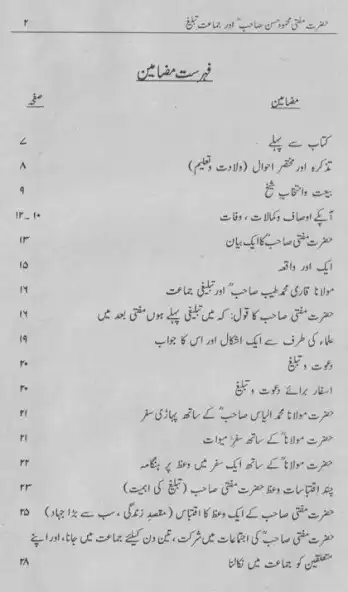 ۲ حضرت مفتی محمود حسن صاحبؒ اور جماعت تبلیغ
فہرست مضامین
مضامین صفحہ
کتاب سے پہلے ۷
تذکرہ اور مختصر احوال (ولادت و تعلیم) ۸
بیعت وانتخابِ شیخ ۹
آپکے اوصاف وکمالات، وفات ۱۰-۱۲
حضرت مفتی صاحبؒ کا ایک بیان ۱۳
ایک اور واقعہ ۱۵
مولانا قاری محمد طیب صاحبؒ اور تبلیغی جماعت ۱۶
حضرت مفتی صاحب کا قول: کہ میں تبلیغی پہلے ہوں مفتی بعد میں ۱۶
علماء کی طرف سے ایک اشکال اور اس کا جواب ۱۹
دعوت و تبلیغ ۲۰
اسفار برائے دعوت و تبلیغ ۲۰
حضرت مولانا محمد الیاس صاحبؒ کے ساتھ پہاڑی سفر ۲۱
حضرت مولاناؒ کے ساتھ سفرِ میوات ۲۱
حضرت مولاناؒ کے ساتھ ایک سفر میں وعظ پر ہنگامہ ۲۲
چند اقتباسات وعظ حضرت مفتی صاحب (تبلیغ کی اہمیت) ۲۳
حضرت مفتی صاحب کے ایک وعظ کا اقتباس (مقصد زندگی، سب سے بڑا جہاد) ۲۵
حضرت مفتی صاحبؒ کی اجتماعات میں شرکت، تین دن کیلئے جماعت میں جانا، اور اپنے
متعلقین کو جماعت میں نکالنا ۲۸